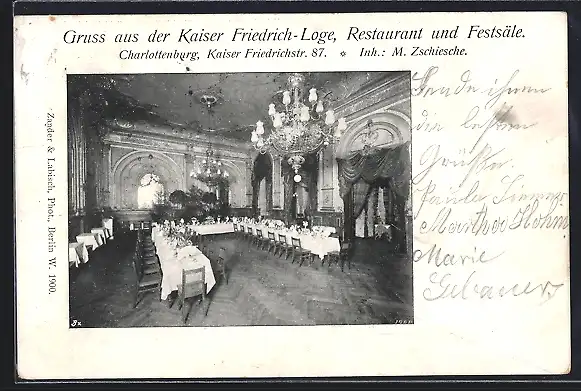 Gruss aus der Kaiser Friedrich-Loge, Restaurant und Festsäle.
Charlottenburg, Kaiser Friedrichstr. 87. * Inh.: M. Zschiesche.
Zander & Labisch, Phot., Berlin W. 1900.
Sende ihnen
die besten
Grüsse.
Paula
Martha Hohm
Marie
Gebauer